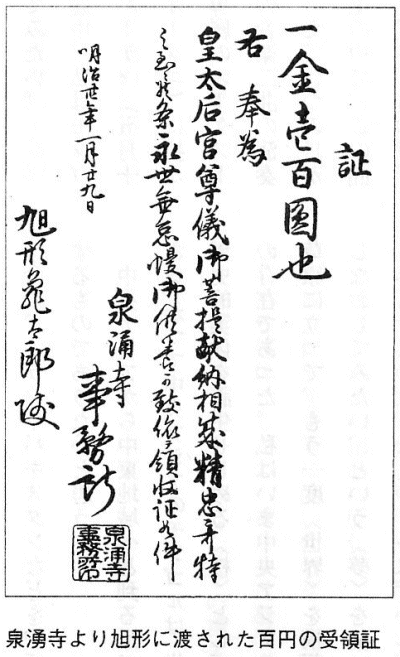 証
一金壱百圓也
右奉為
皇太后宮尊儀御菩提献納相成精忠奇特
之至ニ候条永世無怠慢御供養可致依テ領収証如件
明治卅年一月廿九日
泉涌寺
事務所
泉涌寺
事務所印
旭形亀太郎殿
泉湧寺より旭形に渡された百円の受領証